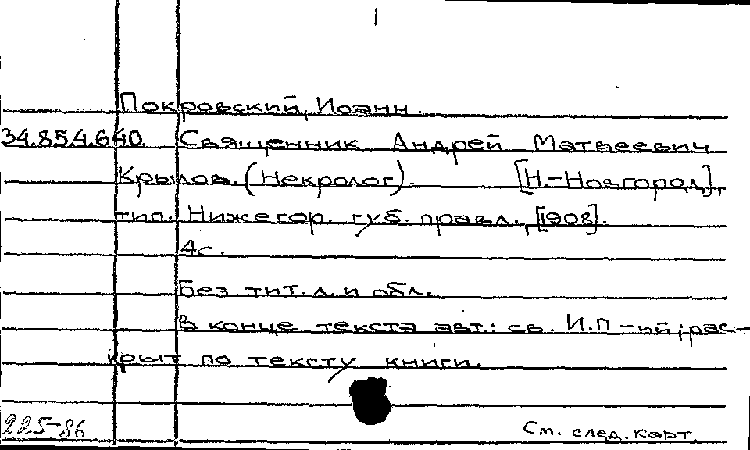 1
Покровский, Иоанн.
34.854.640. Священник Андрей Матвеевич
Крылов. (Некролог). [Н.-Новгород],
тип. Нижегор. губ. правл., [1908].
4с.
Без тит. л. и обл.
В конце текста авт.: св. И.П-ий; рас-
крыт по тексту книги.
225-86
См. след. карт.